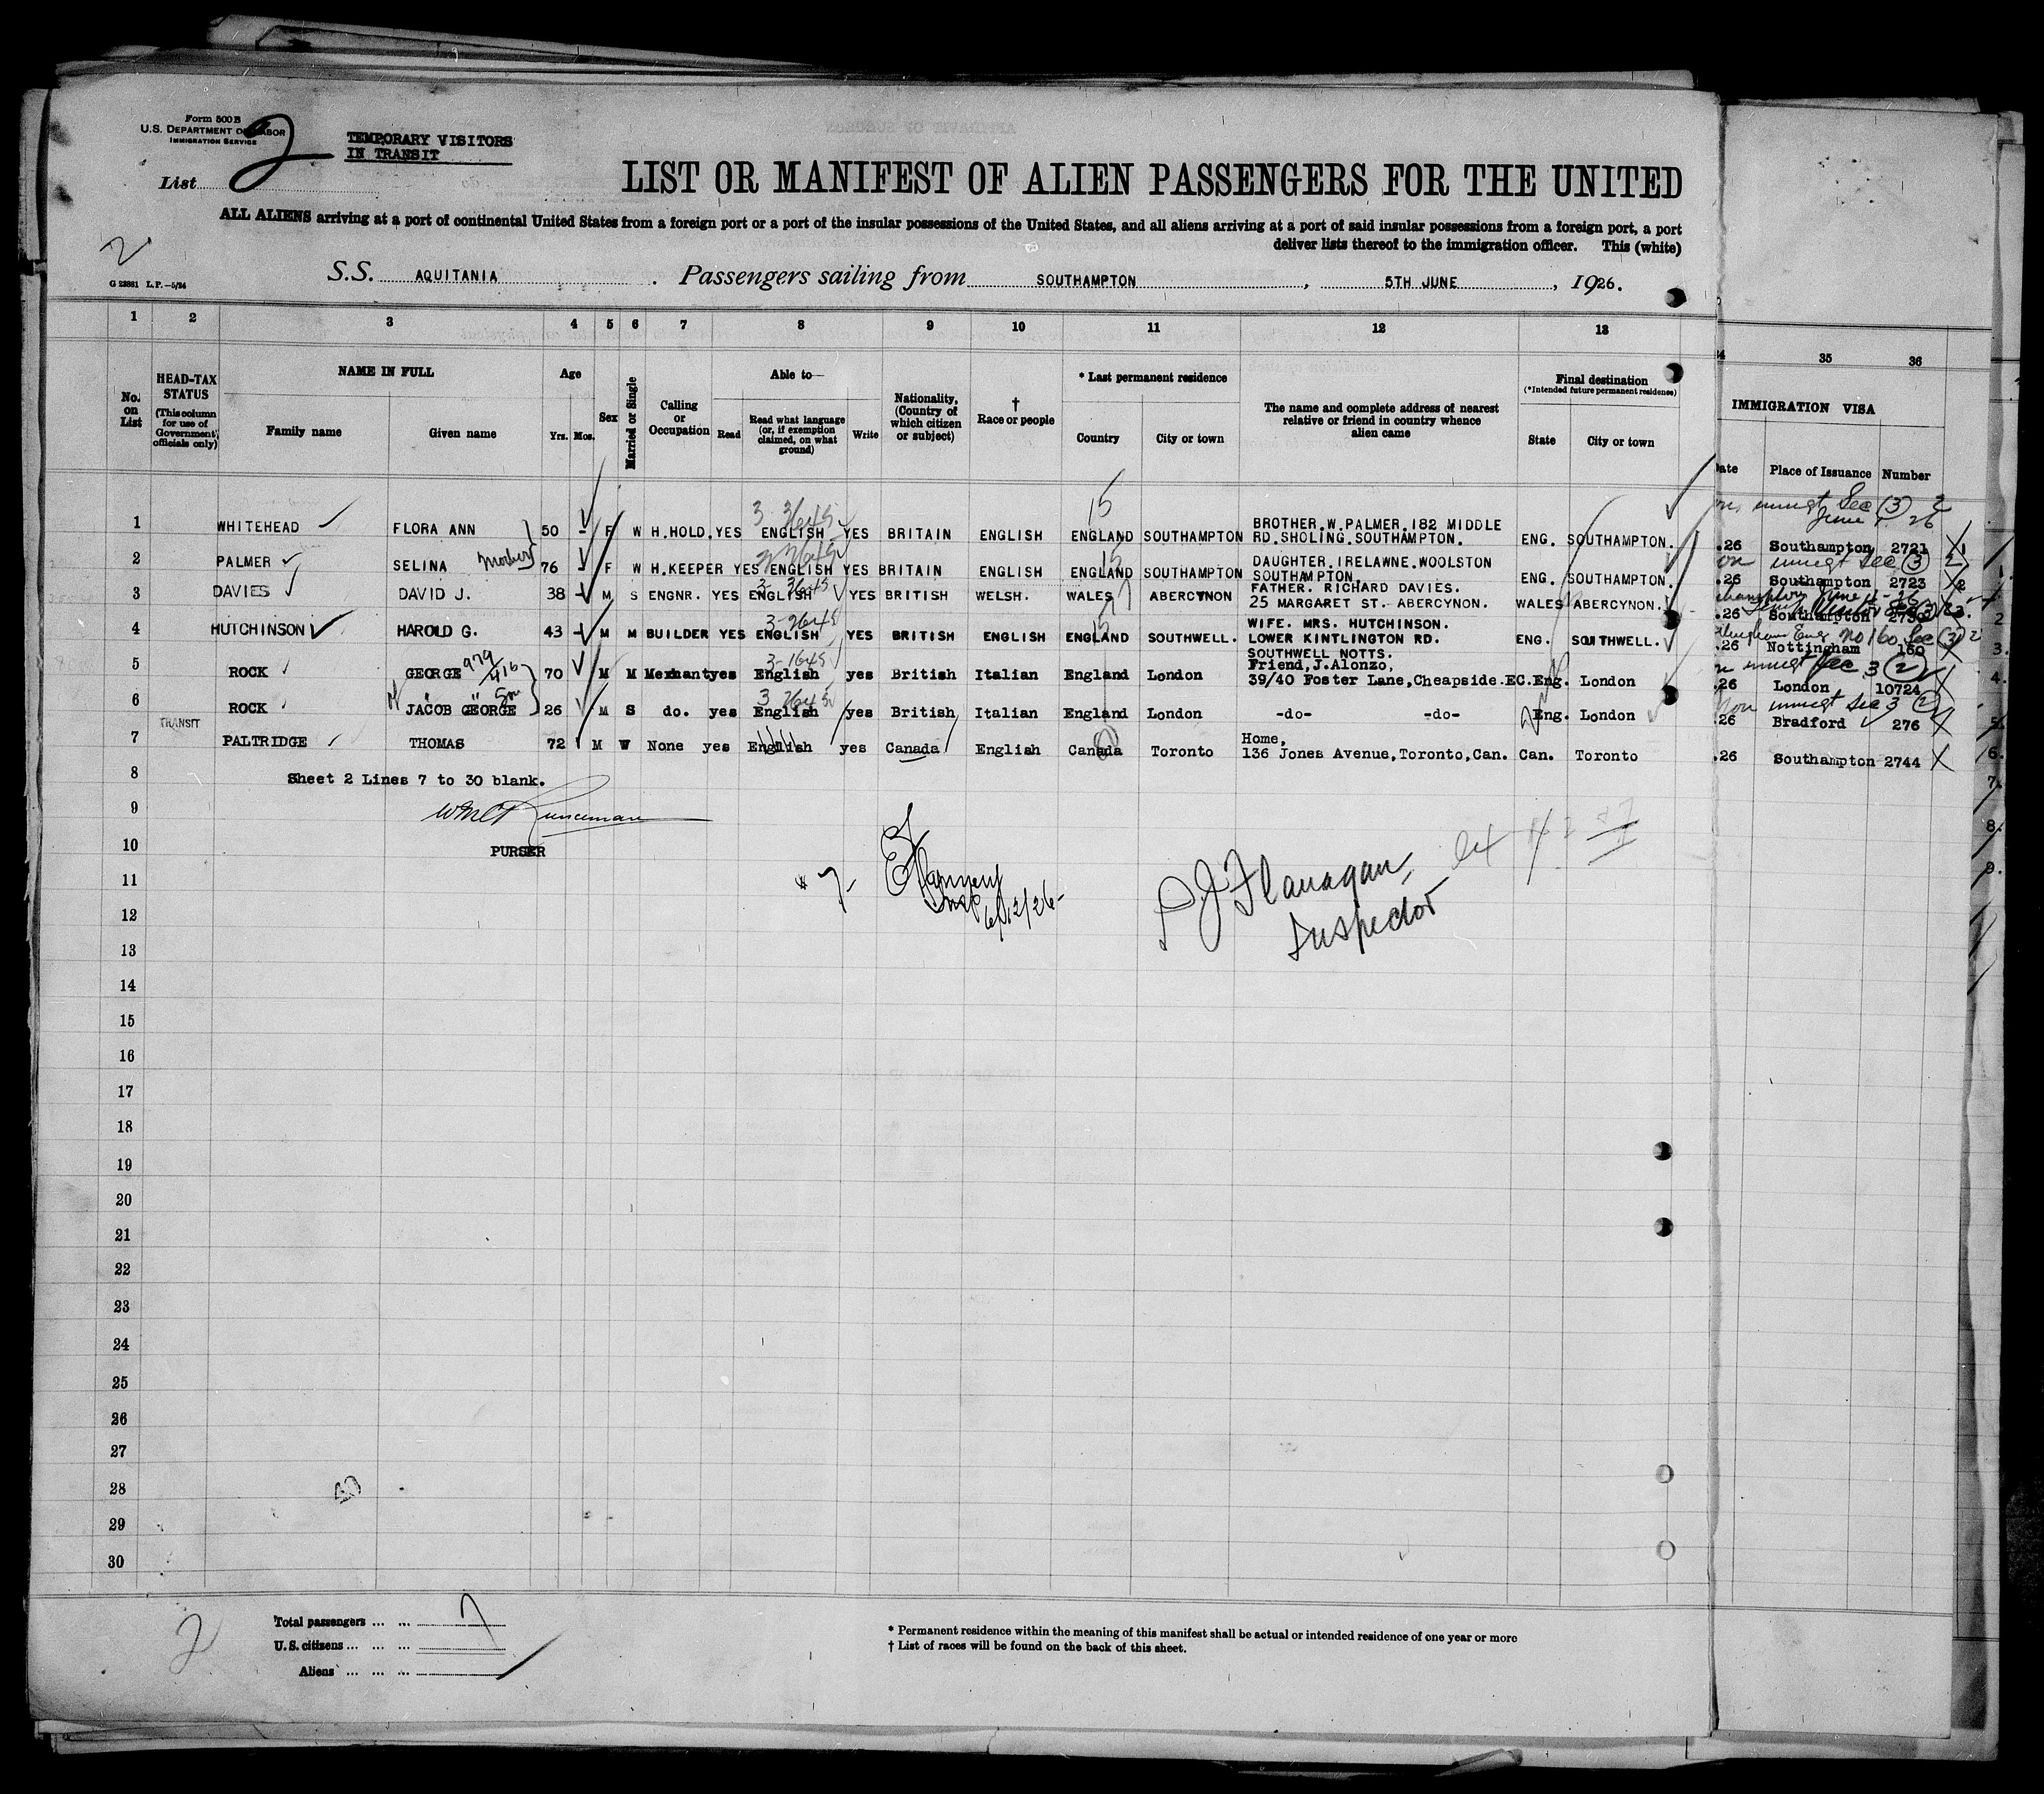 Form 500 B
U.S. DEPARTMENT OF LABOR
IMMIGRATION SERVICE
TEMPORARY VISITORS
IN TRANSIT
List 2
LIST OR MANIFEST OF ALIEN PASSENGERS FOR THE UNITED
ALL ALIENS arriving at a port of continental United States from a foreign port or a port of the insular possessions of the United States, and all aliens arriving at a port of said insular possessions from a foreign port, a port
deliver lists thereof to the immigration officer. This (white)
2
S.S. AQUITANIA. Passengers sailing from SOUTHAMPTON, 5TH JUNE, 1926.
G 23861 L.P.—5/24
1 2 3 4 5 6 7 8 9 10 11 12 13 35 36
No. on List
HEAD-TAX STATUS (This column for use of Government officials only)
NAME IN FULL Family name Given name
Age Yrs. Mos.
Sex
Married or Single
Calling or Occupation
Able to— Read Read what language (or, if exemption claimed, on what ground) Write
Nationality, (Country of which citizen or subject)
† Race or people
* Last permanent residence Country City or town
The name and complete address of nearest relative or friend in country whence alien came
Final destination (*Intended future permanent residence) State City or town
IMMIGRATION VISA Date Place of Issuance Number
15
1 WHITEHEAD FLORA ANN 50 - F W H.HOLD. YES ENGLISH YES BRITAIN ENGLISH ENGLAND SOUTHAMPTON BROTHER.W.PALMER.182 MIDDLE RD.SHOLING.SOUTHAMPTON. ENG. SOUTHAMPTON. .26 Southampton 2721
2 PALMER SELINA Mother 76 - F W H.KEEPER YES ENGLISH YES BRITAIN ENGLISH ENGLAND SOUTHAMPTON DAUGHTER.IRELAWNE.WOOLSTON SOUTHAMPTON. ENG. SOUTHAMPTON. .26 Southampton 2723
3 DAVIES DAVID J. 38 - M S ENGNR. YES ENGLISH YES BRITISH WELSH. WALES ABERCYNON FATHER. RICHARD DAVIES. 25 MARGARET ST. ABERCYNON. WALES ABERCYNON. .26 Southampton
4 HUTCHINSON HAROLD G. 43 - M M BUILDER YES ENGLISH YES BRITISH ENGLISH ENGLAND SOUTHWELL. WIFE. MRS. HUTCHINSON. LOWER KINTLINGTON RD. SOUTHWELL NOTTS. ENG. SOUTHWELL. .26 Nottingham 160
5 ROCK GEORGE 979/416 70 M M Merchant yes English yes British Italian England London Friend,J.Alonzo, 39/40 Foster Lane,Cheapside.EC. Eng. London .26 London 10724
6 ROCK JACOB GEORGE Son 26 M S do. yes English yes British Italian England London -do- -do- Eng. London .26 Bradford 276
TRANSIT
7 PALTRIDGE THOMAS 72 M W None yes English yes Canada English Canada Toronto Home, 136 Jones Avenue,Toronto,Can. Can. Toronto .26 Southampton 2744
8 Sheet 2 Lines 7 to 30 blank.
9
10 PURSER
11
P J Flanagan,
Inspector
Insp 6/12/26
12
13
14
15
16
17
18
19
20
21
22
23
24
25
26
27
28
29
30
2
Total passengers ... ... 7
U.S. citizens ... ... ...
Aliens ... ... ...
* Permanent residence within the meaning of this manifest shall be actual or intended residence of one year or more
† List of races will be found on the back of this sheet.